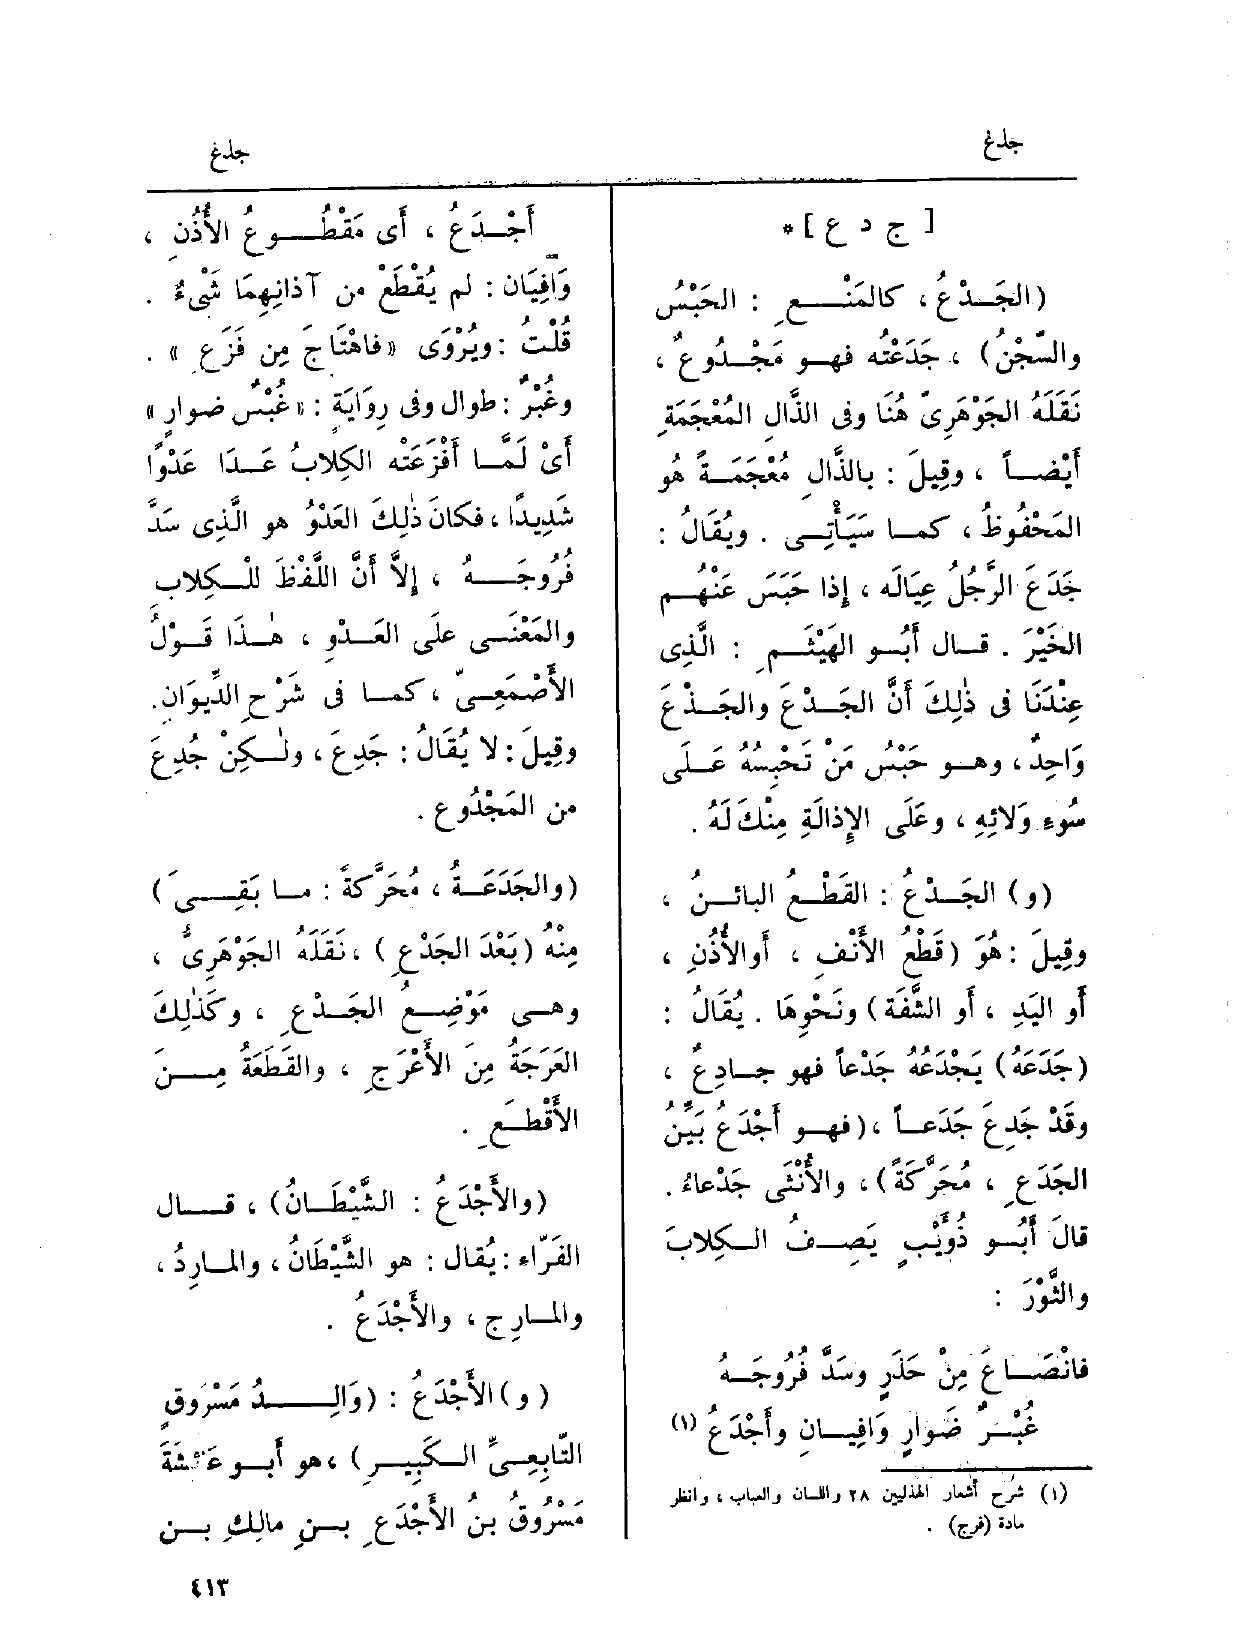 جدع
جدع
[ ج د ع ] *
(الجَدْعُ ، كالمَنْعِ : الحَبْسُ
والسِّجْنُ) ، جَدَعْتُه فهو مَجْدُوعٌ ،
نَقَلَهُ الجَوْهَرِىّ هُنَا وفى الذّالِ المُعْجَمَةِ
أَيْضاً ، وقِيلَ : بالذّالِ مُعْجَمَةً هو
المَحْفُوظُ ، كما سَيَأْتِى . ويُقَالُ :
جَدَعَ الرَّجُلُ عِيَالَه ، إذا حَبَسَ عَنْهُم
الخَيْرَ . قال أَبُو الهَيْثَمِ : الَّذِى
عِنْدَنَا فى ذٰلِكَ أَنَّ الجَدْعَ والجَذْعَ
وَاحِدٌ ، وهو حَبْسُ مَنْ تَحْبِسُهُ عَلَى
سُوءِ وَلَائِهِ ، وعَلَى الإِذالَةِ مِنْكَ لَهُ .
(و) الجَدْعُ : القَطْعُ البائنُ ،
وقِيلَ : هُوَ (قَطْعُ الأَنْفِ ، أو الأُذُنِ ،
أو اليَدِ ، أو الشَّفَة) ونَحْوِهَا . يُقَالُ :
(جَدَعَهُ) يَجْدَعُهُ جَدْعاً فهو جادِعٌ ،
وقَدْ جَدِعَ جَدَعاً ، (فهو أَجْدَعُ بَيِّنُ
الجَدَعِ ، مُحَرَّكَةً) ، والأُنْثَى جَدْعاءُ .
قالَ أَبُو ذُؤَيْبٍ يَصِفُ الكِلابَ
والثَّوْرَ :
فانْصَاعَ مِنْ حَذَرٍ وسَدَّ فُرُوجَهُ
غُبْرٌ ضَوارٍ وَافِيانِ وأَجْدَعُ (١)
(١) شرح أشعار الهذليين ٢٨ واللسان والعباب ، وانظر
مادة (فرج) .
أَجْدَعُ ، أَى مَقْطُوعُ الأُذُنِ ،
وَافِيَان : لم يُقْطَعْ من آذانِهِمَا شَىْءٌ .
قُلْتُ : ويُرْوَى «فاهْتَاجَ مِن فَزَعٍ » .
وغُبْرٌ : طوال وفى رِوَايَةٍ : «غُبْسٌ ضوارٍ»
أَىْ لَمَّا أَفْزَعَتْه الكِلابُ عَدَا عَدْوًا
شَدِيدًا ، فكانَ ذٰلِكَ العَدْوُ هو الَّذِى سَدَّ
فُرُوجَهُ ، إلاَّ أَنَّ اللَّفْظَ للْكِلابِ
والمَعْنَى علَى العَدْوِ ، هٰذَا قَوْلُ
الأَصْمَعِىّ ، كما فى شَرْحِ الدِّيوَانِ .
وقِيلَ : لا يُقَالُ : جَدِعَ ، ولٰكِنْ جُدِعَ
من المَجْدُوعِ .
(والجَدَعَةُ ، مُحَرَّكَةً : ما بَقِىَ)
مِنْهُ (بَعْدَ الجَدْعِ) ، نَقَلَهُ الجَوْهَرِىُّ ،
وهى مَوْضِعُ الجَدْعِ ، وكَذٰلِكَ
العَرَجَةُ مِنَ الأَعْرَجِ ، والقَطَعَةُ مِنَ
الأَقْطَعِ .
(والأَجْدَعُ : الشَّيْطَانُ) ، قال
الفَرّاء : يُقال : هو الشَّيْطَانُ ، والمارِدُ ،
والمارِج ، والأَجْدَعُ .
(و) الأَجْدَعُ : (وَالِدُ مَسْرُوقٍ
التّابِعِىِّ الكَبِيرِ) ، هو أَبو عَائشَةَ
مَسْرُوقُ بنُ الأَجْدَعِ بنِ مالِكِ بن
٤١٣